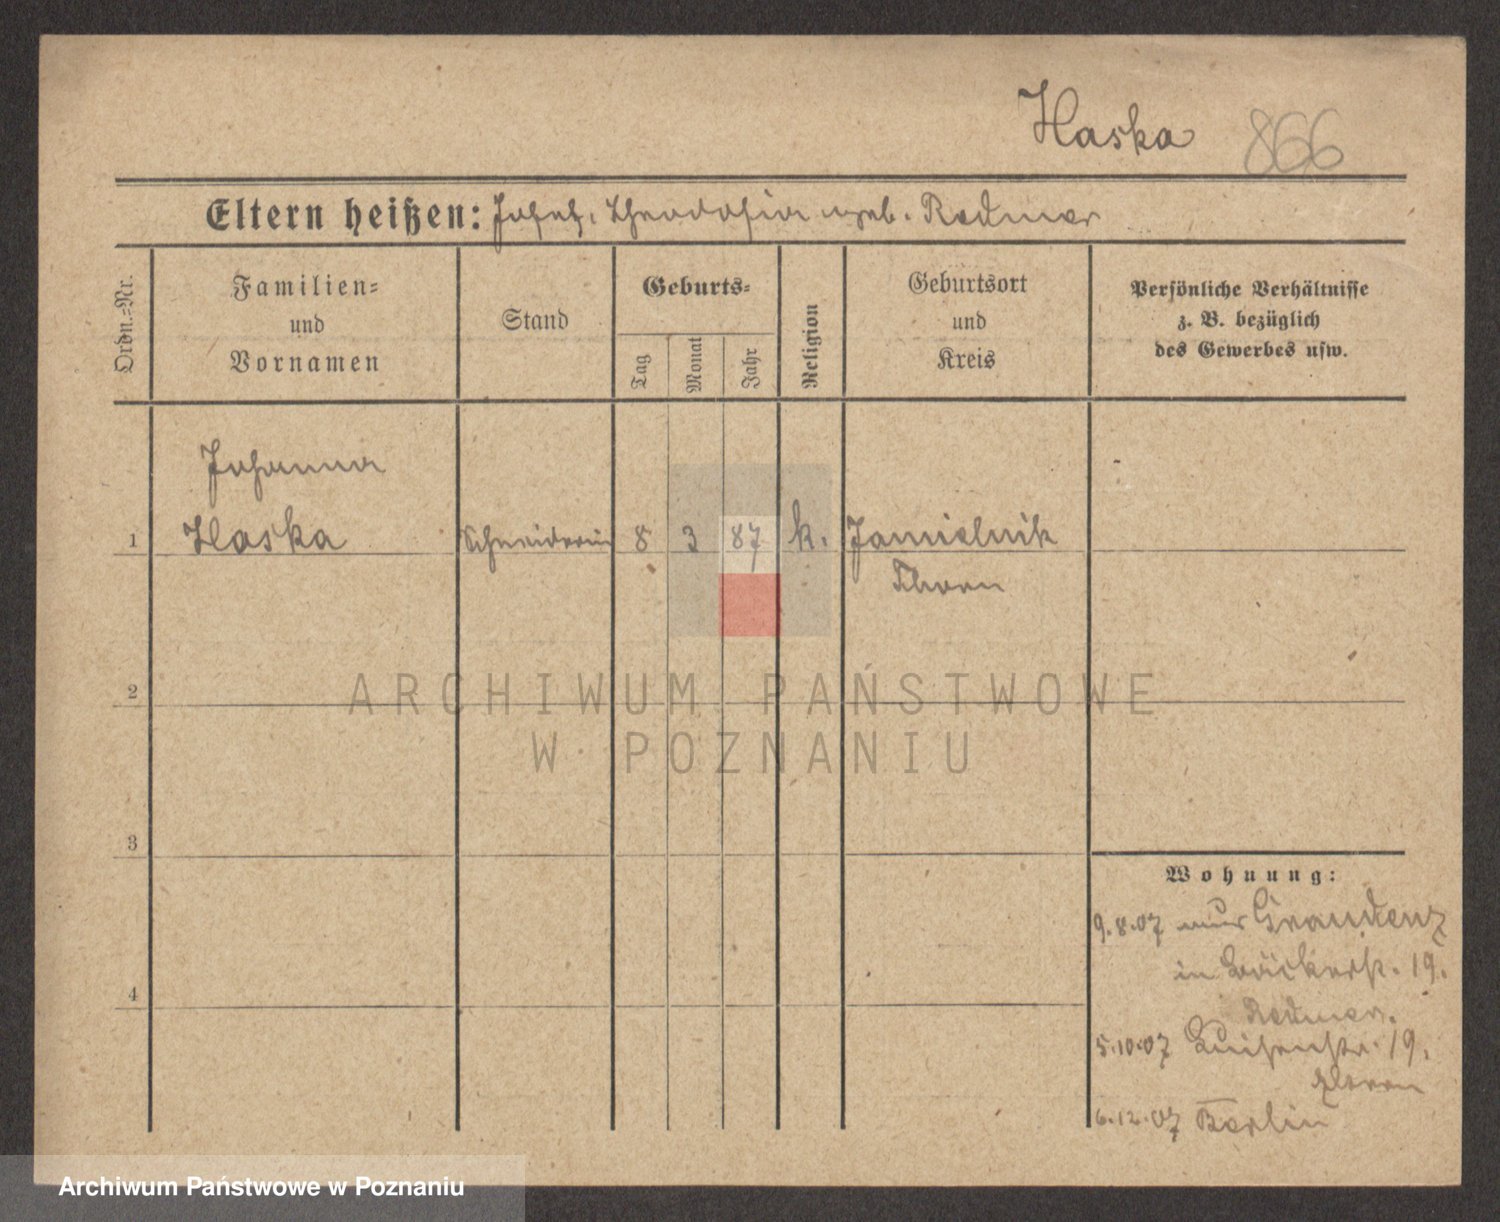 Haska 866
Eltern heißen: Josef, Theodosia geb. Redmer
Ordn.=Nr.
Familien=
und
Vornamen
Stand
Geburts=
Tag
Monat
Jahr
Religion
Geburtsort
und
Kreis
Persönliche Verhältnisse
z. B. bezüglich
des Gewerbes usw.
Johanna
1 Haska Schneiderin 8 3 87 k. Jamielnik
Thorn
2
ARCHIWUM PAŃSTWOWE
W POZNANIU
3
Wohnung:
9.8.07 aus Graudenz
in Bäckerstr. 19.
Redmer.
4
5.10.07 Luisenstr. 19.
Eltern
6.12.07 Berlin
Archiwum Państwowe w Poznaniu